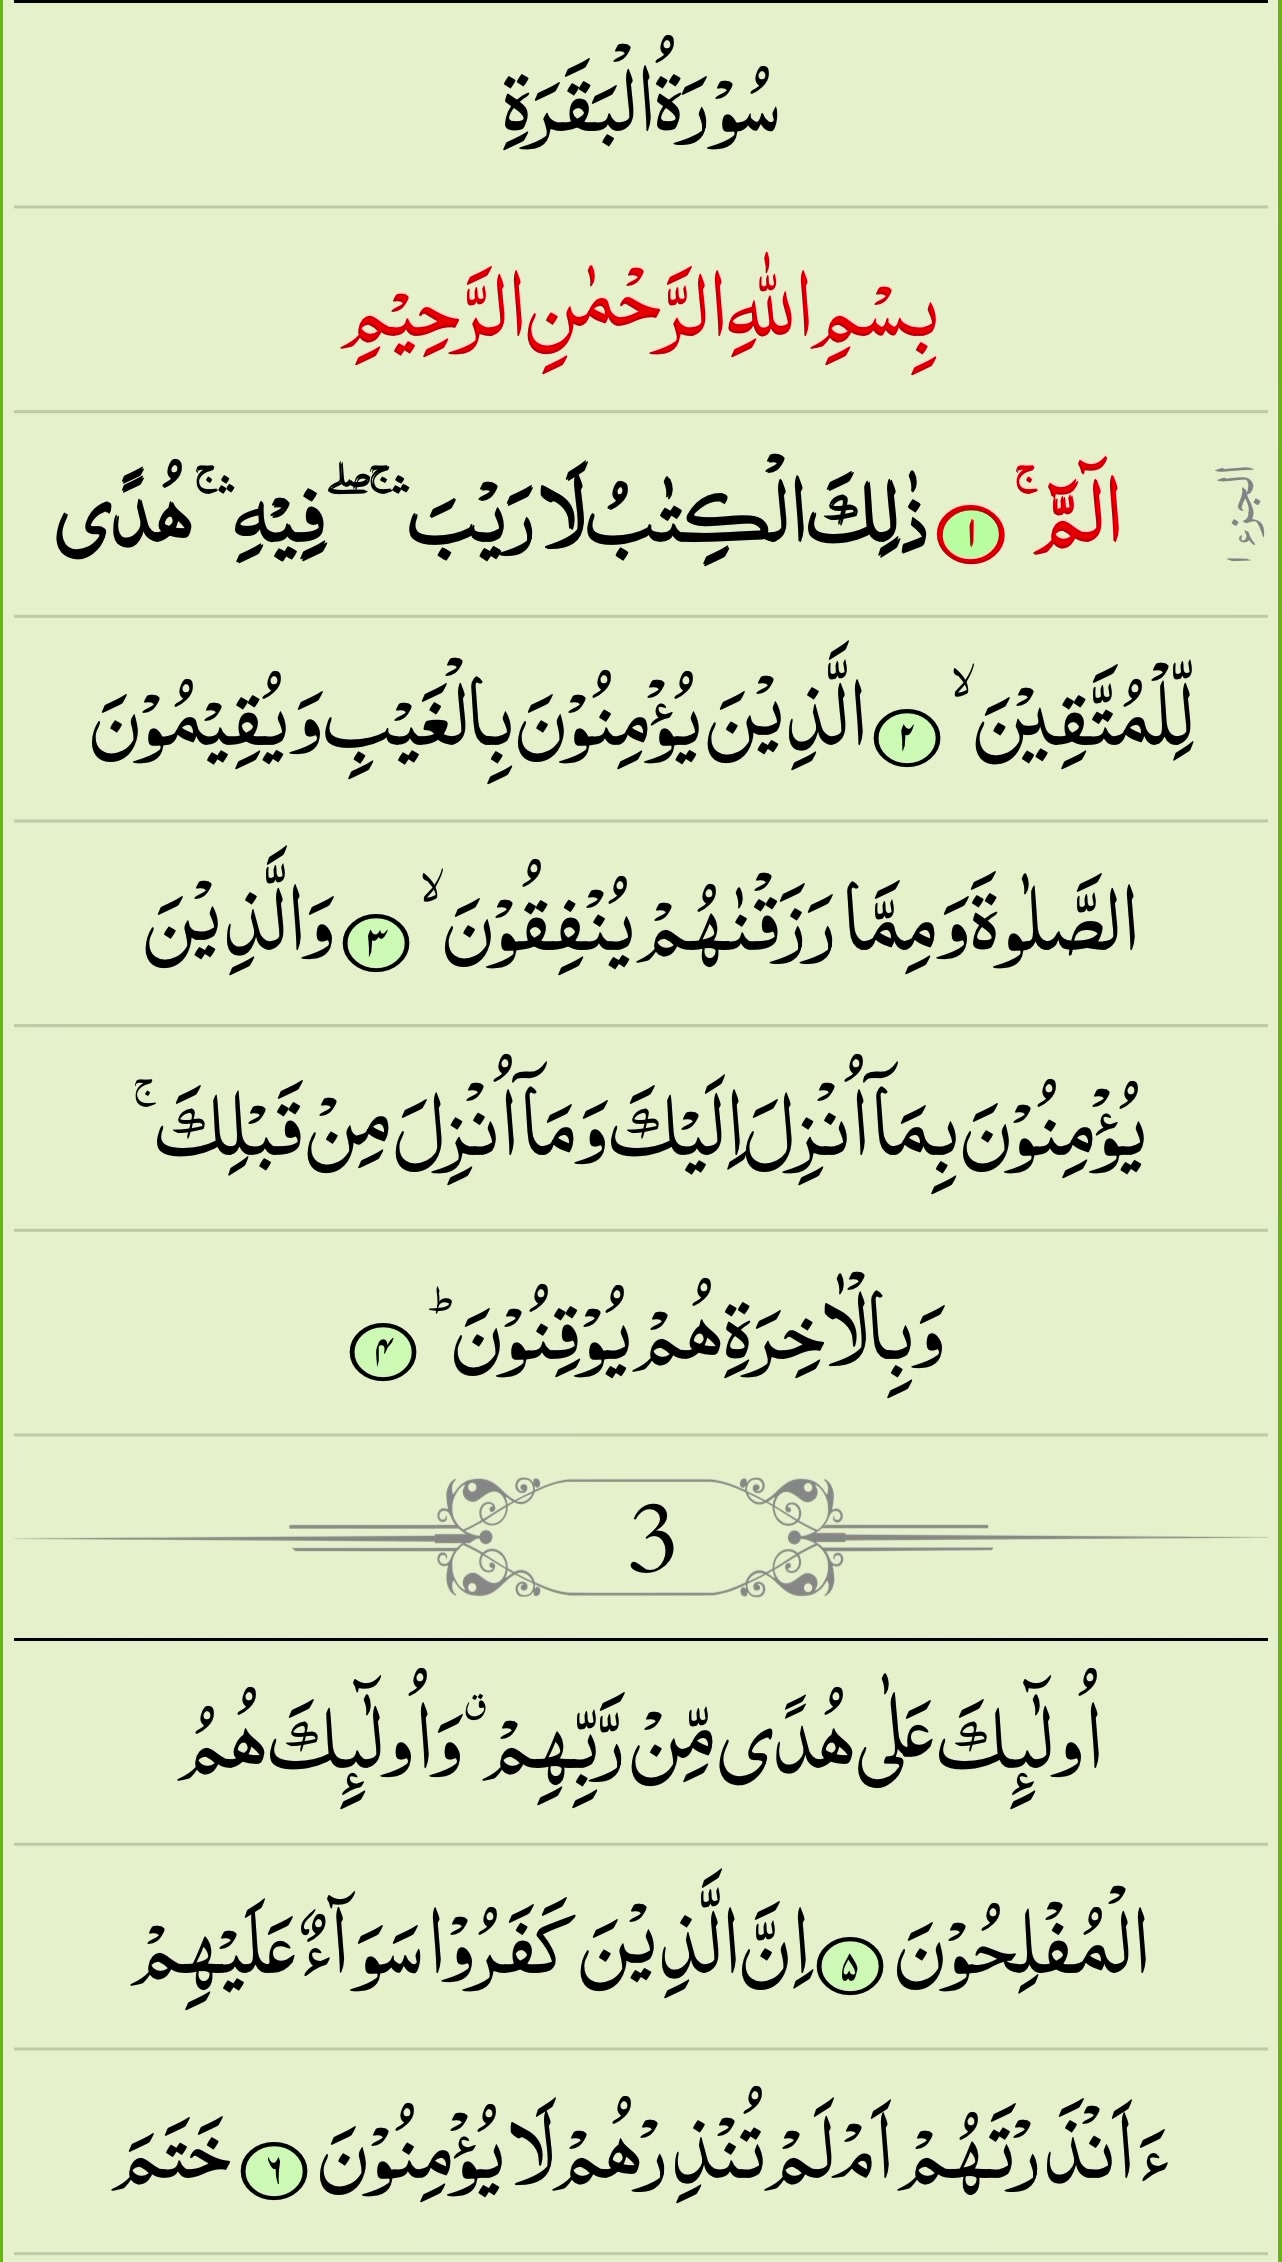 سُوْرَةُ الْبَقَرَةِ
بِسْمِ اللّٰهِ الرَّحْمٰنِ الرَّحِيْمِ
الجزء ١
الٓمّٓ ۚ ١ ذٰلِكَ الْكِتٰبُ لَا رَيْبَ ۛۚۖ فِيْهِ ۛۚ هُدًى
لِّلْمُتَّقِيْنَ ۙ ٢ الَّذِيْنَ يُؤْمِنُوْنَ بِالْغَيْبِ وَيُقِيْمُوْنَ
الصَّلٰوةَ وَمِمَّا رَزَقْنٰهُمْ يُنْفِقُوْنَ ۙ ٣ وَالَّذِيْنَ
يُؤْمِنُوْنَ بِمَآ اُنْزِلَ اِلَيْكَ وَمَآ اُنْزِلَ مِنْ قَبْلِكَ ۚ
وَبِالْاٰخِرَةِ هُمْ يُوْقِنُوْنَ ؕ ۴
3
اُولٰٓئِكَ عَلٰى هُدًى مِّنْ رَّبِّهِمْ ۗ وَاُولٰٓئِكَ هُمُ
الْمُفْلِحُوْنَ ۵ اِنَّ الَّذِيْنَ كَفَرُوْا سَوَآءٌ عَلَيْهِمْ
ءَاَنْذَرْتَهُمْ اَمْ لَمْ تُنْذِرْهُمْ لَا يُؤْمِنُوْنَ ٦ خَتَمَ